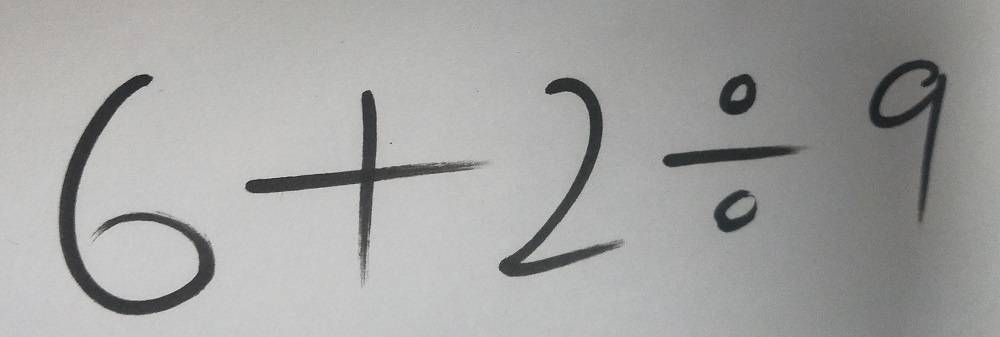 6+2÷9